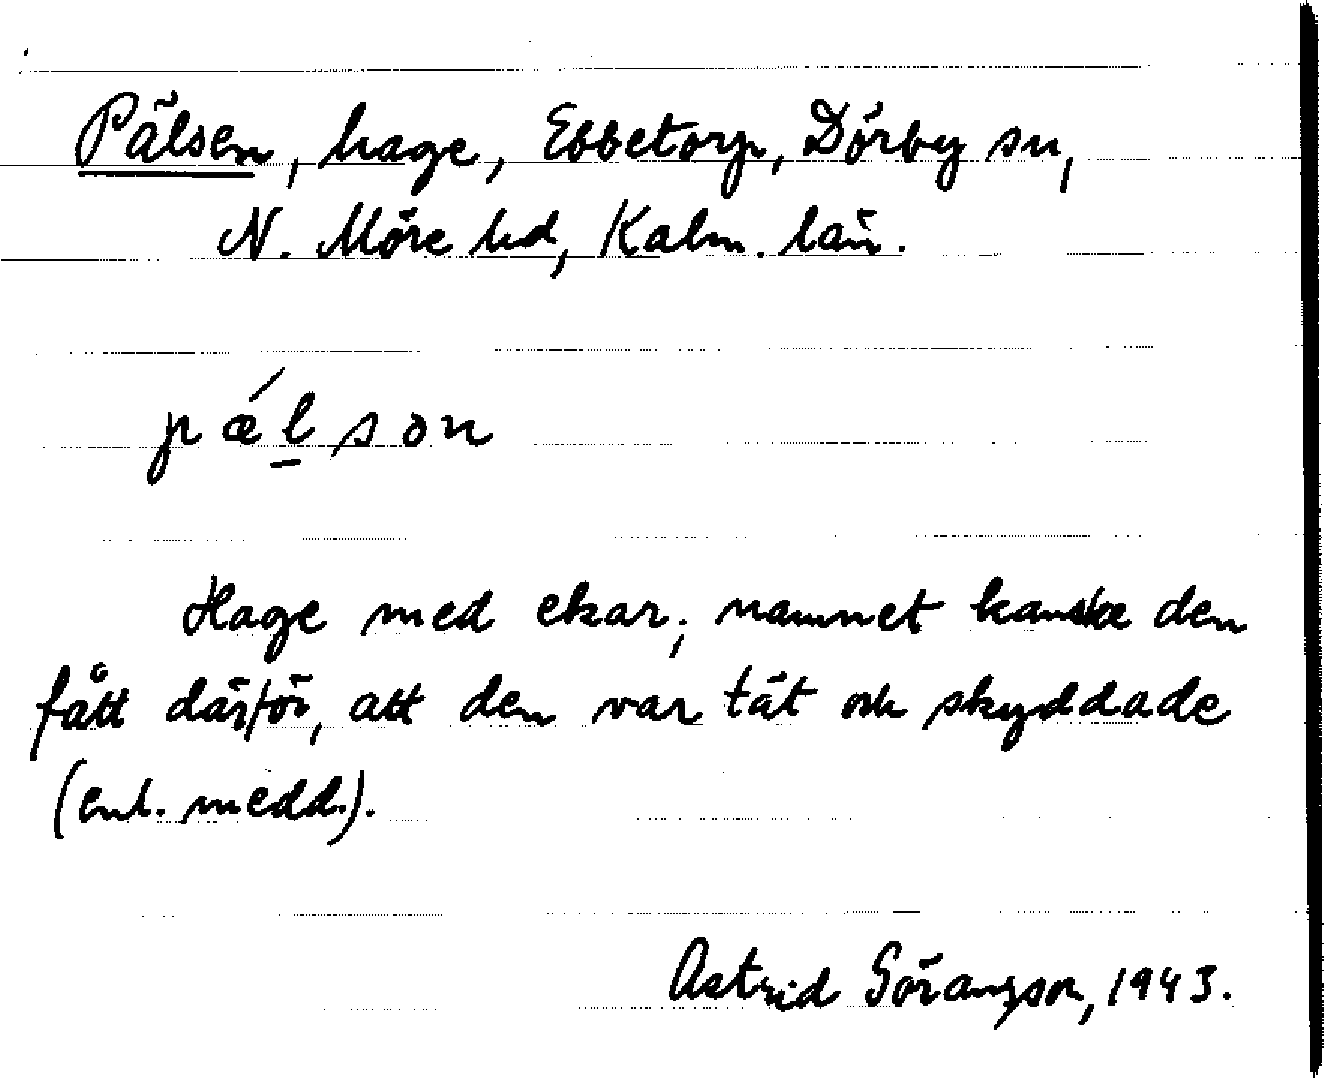 Pälsen, hage, Ebbetorp, Dörby sn,
N. Möre hd, Kalm. län.
pǽl̲son
Hage med ekar; namnet kanske den
fått därför, att den var tät och skyddade
(enl. medd.).
Astrid Göransson, 1943.